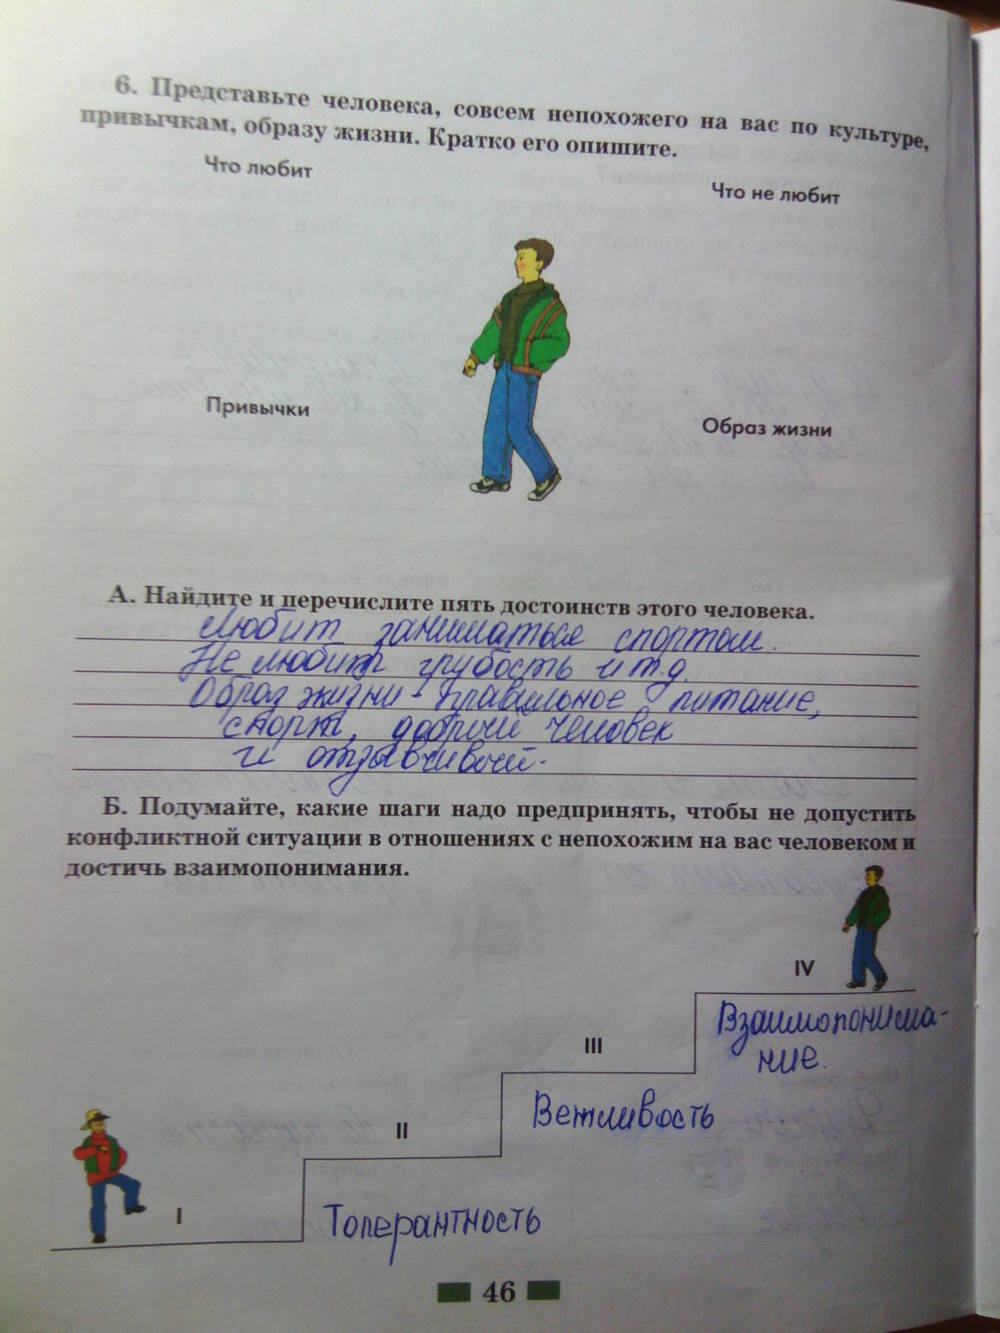 6. Представьте человека, совсем непохожего на вас по культуре,
привычкам, образу жизни. Кратко его опишите.
Что любит
Что не любит
Привычки
Образ жизни
А. Найдите и перечислите пять достоинств этого человека.
Любит заниматься спортом.
Не любит грубость и т.д.
Образ жизни - правильное питание,
спорт, добрый человек
и отзывчивый.
Б. Подумайте, какие шаги надо предпринять, чтобы не допустить
конфликтной ситуации в отношениях с непохожим на вас человеком и
достичь взаимопонимания.
IV
Взаимопонима-
ние.
III
Вежливость
II
Толерантность
I
46